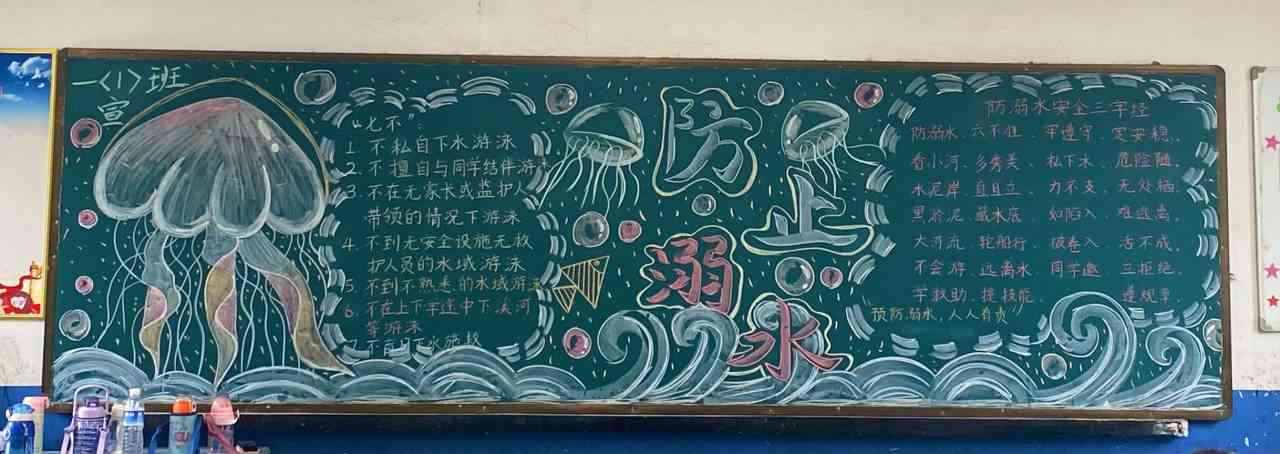 一<1>班
宣
"七不":
1. 不私自下水游泳
2. 不擅自与同学结伴游泳
3. 不在无家长或监护人
带领的情况下游泳
4. 不到无安全设施无救
护人员的水域游泳
5. 不到不熟悉的水域游泳
6. 不在上下学途中下溪河
等游泳
7. 不盲目下水施救
防止
溺水
防溺水安全三字经
防溺水、六不准、牢遵守、定安稳、
看小河、多秀美、私下水、危险随、
水泥岸、直且立、力不支、无处栖、
里淤泥、藏水底、如陷入、难逃离、
大河流、轮船行、被卷入、活不成、
不会游、远离水、同学邀、立拒绝、
学救助、提技能、遵规章、
预防溺水,人人有责"